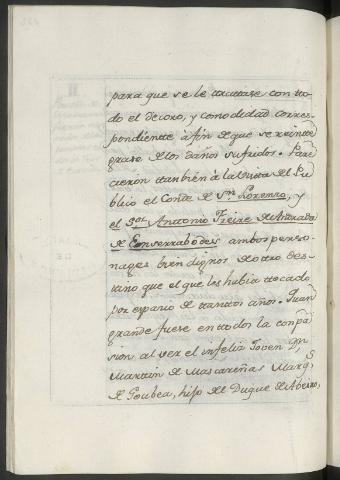 para que se le trattase con tto-
do el decoro, y comodidad corres-
pondientte à fin de que se reintte-
grase de los daños sufridos. Pare-
cieron ttanbien à la Vistta del Pu-
blico el Conde de Sn. Lorenzo, y
el Sor. Anttonio Freire de Andrada
de Enserrabodes ambos perso-
nages bien dignos de ottro des-
tino que el que les habia ttocado
por espacio de ttanttos años. Quan
grande fuese en ttodos la conpa-
sion al ver el infeliz Joven Dn.
Marttin de Mascareñas Marqs.
de Goubea, hijo del Duque de Abeiro,